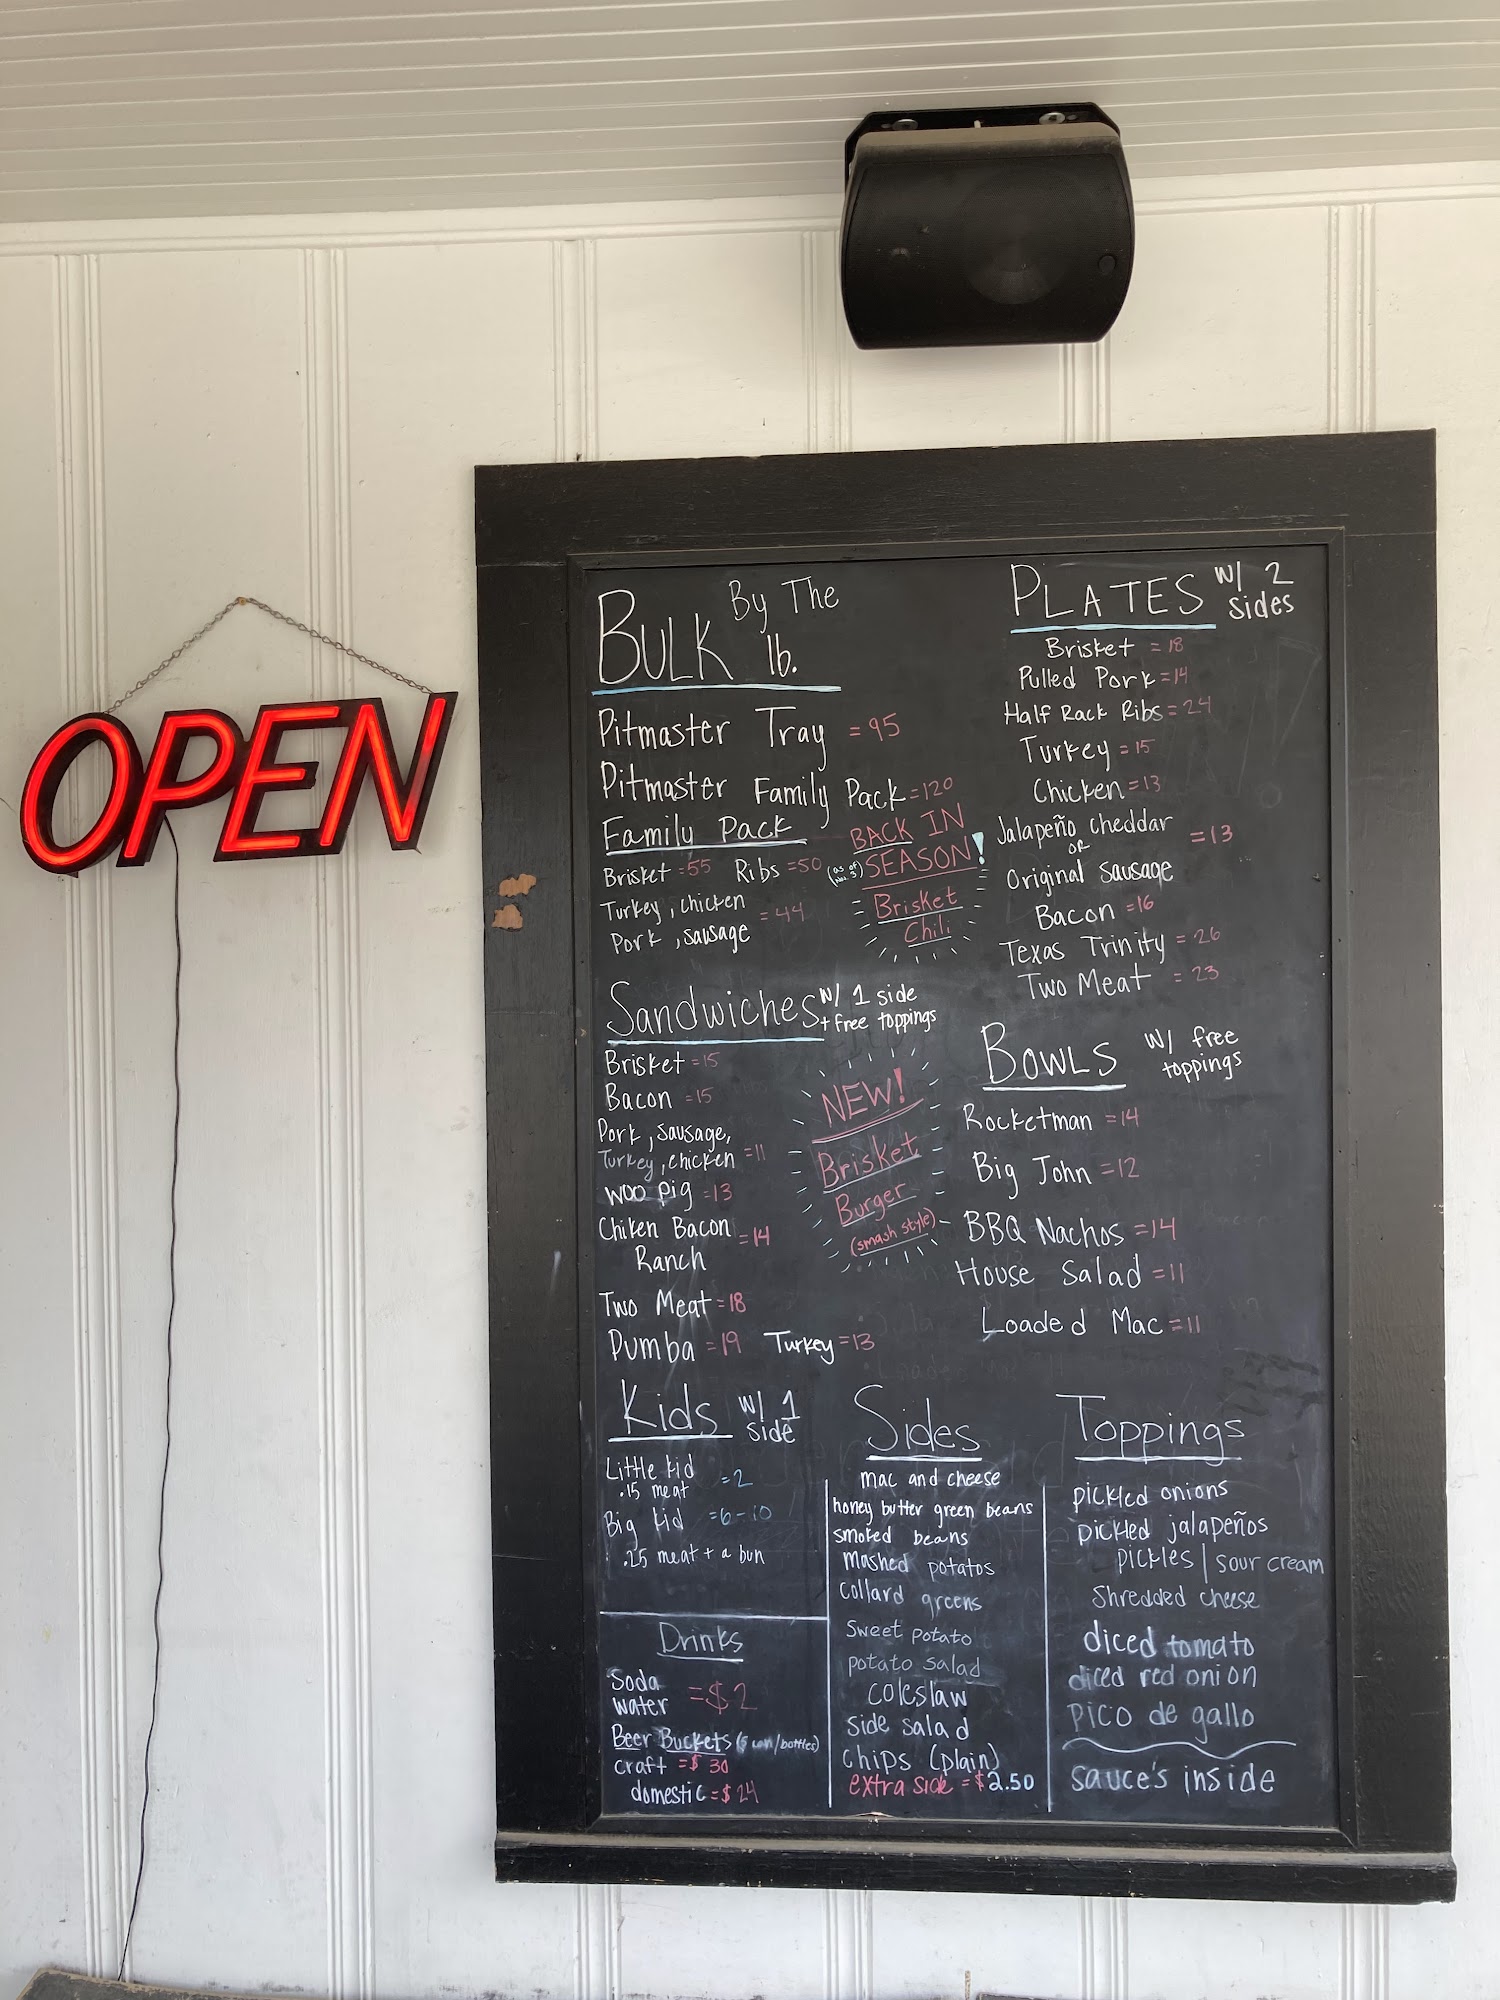 OPEN
BULK By The lb.
Pitmaster Tray = 95
Pitmaster Family Pack = 120
Family Pack
Brisket = 55 Ribs = 50
Turkey, chicken
Pork, sausage = 44
BACK IN
(as of Nov. 5) SEASON!
Brisket
Chili
PLATES w/ 2 sides
Brisket = 18
Pulled Pork = 14
Half Rack Ribs = 24
Turkey = 15
Chicken = 13
Jalapeño Cheddar
or = 13
Original Sausage
Bacon = 16
Texas Trinity = 26
Two Meat = 23
Sandwiches w/ 1 side
+ free toppings
Brisket = 15
Bacon = 15
Pork, sausage,
Turkey, chicken = 11
WOO Pig = 13
Chiken Bacon = 14
Ranch
Two Meat = 18
Pumba = 19 Turkey = 13
NEW!
Brisket
Burger
(smash style)
BOWLS w/ free
toppings
Rocketman = 14
Big John = 12
BBQ Nachos = 14
House Salad = 11
Loaded Mac = 11
Kids w/ 1
side
Little kid = 2
.15 meat
Big kid = 6-10
.25 meat + a bun
Drinks
Soda
water = $2
Beer Buckets (5 can/bottles)
craft = $30
domestic = $24
Sides
mac and cheese
honey butter green beans
smoked beans
mashed potatos
collard greens
sweet potato
potato salad
coleslaw
side salad
chips (plain)
extra side = $2.50
Toppings
pickled onions
pickled jalapeños
pickles | sour cream
shredded cheese
diced tomato
diced red onion
pico de gallo
sauce's inside